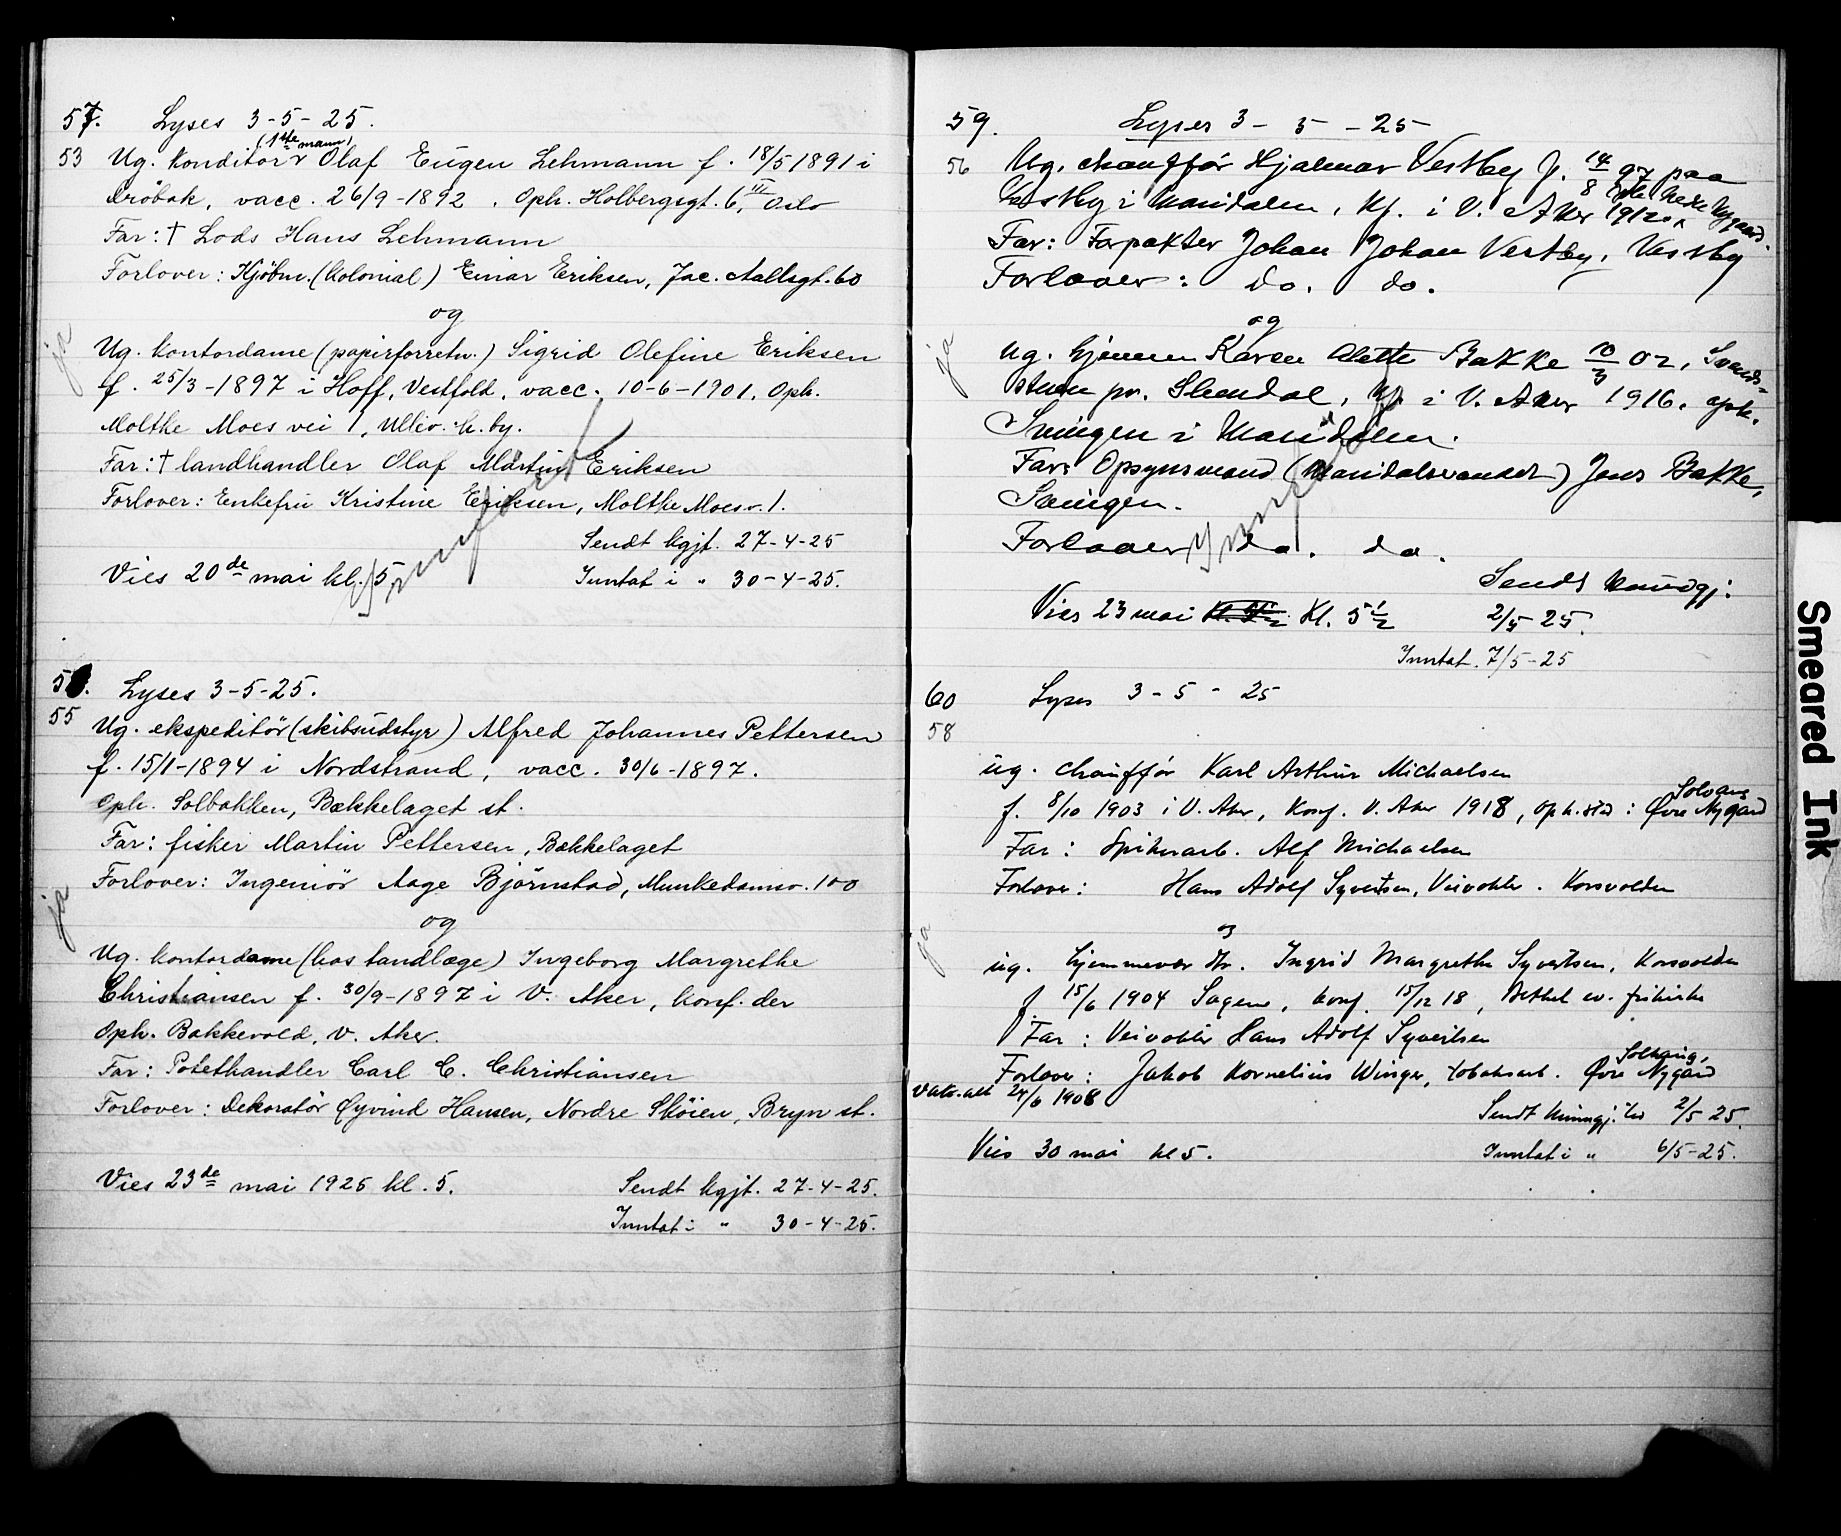 57. Lyses 3-5-25.
(1ste mann)
53 Ug. Konditor Olaf Eugen Lehmann f. 18/5 1891 i
Drøbak, vacc. 26/9-1892. Oph. Holbergsgt. 6, III Oslo
Far: † Lods Hans Lehmann
Forlover: Kjøbm. (kolonial) Einar Eriksen, Jac. Aallsgt. 60
og
ja
Ug. kontordame (papirforretn.) Sigrid Olefine Eriksen
f. 25/3-1897 i Hoff, Vestfold, vacc. 10-6-1901. Oph.
Moltke Moes vei 1, Ullev. h. by.
Far: † landhandler Olaf Martin Eriksen
Forlover: Enkefru Kristine Eriksen, Moltke Moes v. 1.
Sendt kgjt. 27-4-25
Vies 20de mai kl. 5
Inntat i " 30-4-25.
58. Lyses 3-5-25.
55 Ug. ekspeditör (skibsudstyr) Alfred Johannes Pettersen
f. 15/1-1894 i Nordstrand, vacc. 30/6-1897.
Oph. Solbakken, Bækkelaget st.
Far: fisker Martin Pettersen, Bækkelaget
Forlover: Ingeniör Aage Björnstad, Munkedamsv. 100
ja
og
Ug. kontordame (hos tandlæge) Ingeborg Margrethe
Christiansen f. 30/9-1897 i V. Aker, konf. der
Oph. Bakkevold, V. Aker.
Far: Potethandler Carl C. Christiansen
Forlover: Dekoratör Øyvind Hansen, Nordre Sköien, Bryn st.
Vies 23de mai 1925 kl. 5.
Sendt kgjt. 27-4-25.
Inntat i " 30-4-25.
59. Lyses 3-5-25
56 Ug. chauffør Hjalmar Vestby f. 14/8 97 paa
Vestby i Maridalen, Kf. i V. Aker 1912. Oph. Nedre Nygaard.
Far: Forpakter Johan Johan Vestby, Vestby
Forlover: do. do.
og
ja
Ug. hjemmev Karen Alette Bakke 10/3 02, Svend-
stuen pr. Slemdal, Kf. i V. Aker 1916. oph.
Svingen i Maridalen.
Far: Opsynsmand (Maridalsvandet) Jens Bakke,
Svingen.
Forlover do. do.
Sendt kundgj:
Vies 23 mai Kl. 5 1/2
2/5 25.
Inntat. 7/5-25
60 Lyses 3-5-25
58
ug. chauffør Karl Arthur Michaelsen
Solvang
f. 8/10 1903 i V. Aker, konf. V. Aker 1918, oph.sted: Øvre Nygård
Far: Spikerarb. Alf Michaelsen
Forlover: Hans Adolf Syvertsen, Veivokter. Korsvolden
og
ja
ug. hjemmevær. dtr. Ingrid Margrethe Syvertsen, Korsvolden
f. 15/6 1904 Sagene, konf. 15/12 18, Bethel ev. frikirke
Far: Veivokter Hans Adolf Syvertsen
Solhaug,
Forlover: Jakob Kornelius Winger, tobaksarb. Øvre Nygård
Vaks.att 24/6 1908
Sendt kunngj. 2/5 25.
Vies 30 mai kl 5.
Inntat i " 6/5-25.
Smeared Ink